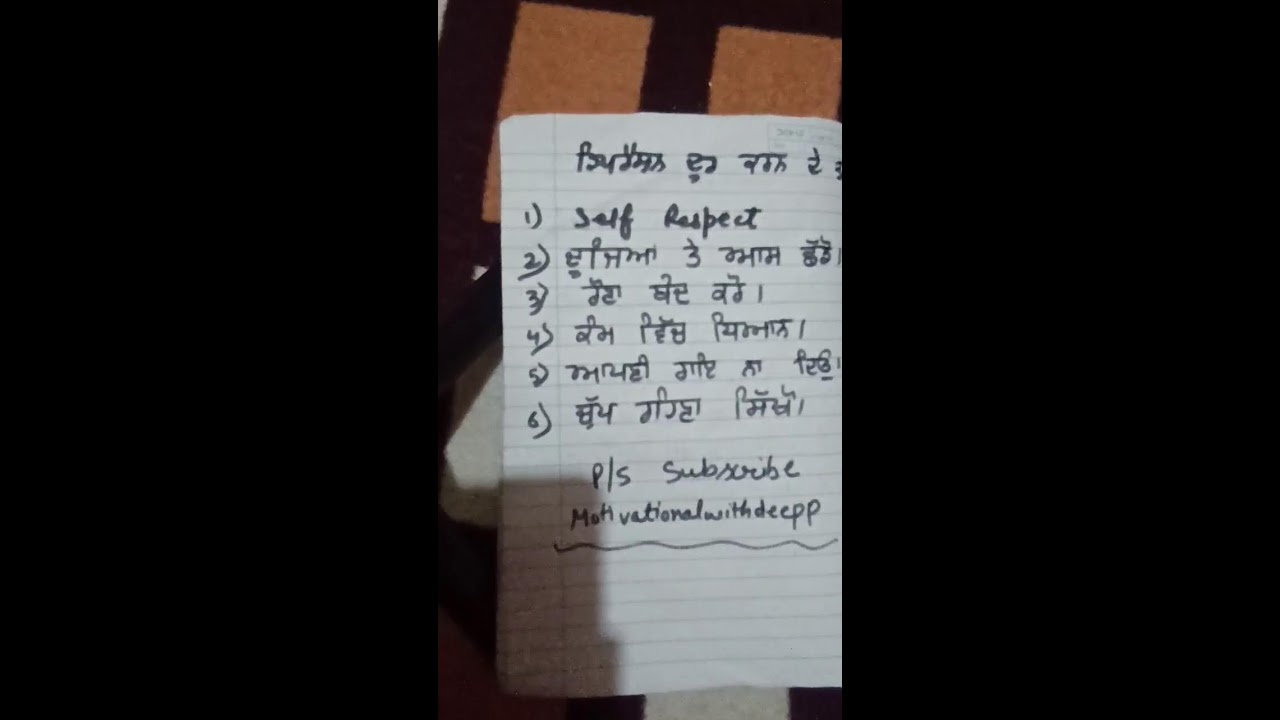 ਡਿਪਰੈਸ਼ਨ ਦੂਰ ਕਰਨ ਦੇ
1) Self Respect
2) ਦੂਜਿਆਂ ਤੇ ਆਸ ਛੱਡੋ।
3) ਰੌਣਾ ਬੰਦ ਕਰੋ।
4) ਕੰਮ ਵਿੱਚ ਧਿਆਨ।
5) ਆਪਣੀ ਰਾਇ ਨਾ ਦਿਉ।
6) ਚੁੱਪ ਰਹਿਣਾ ਸਿੱਖੋ।
P/S Subscribe
Motivationalwithdeepp